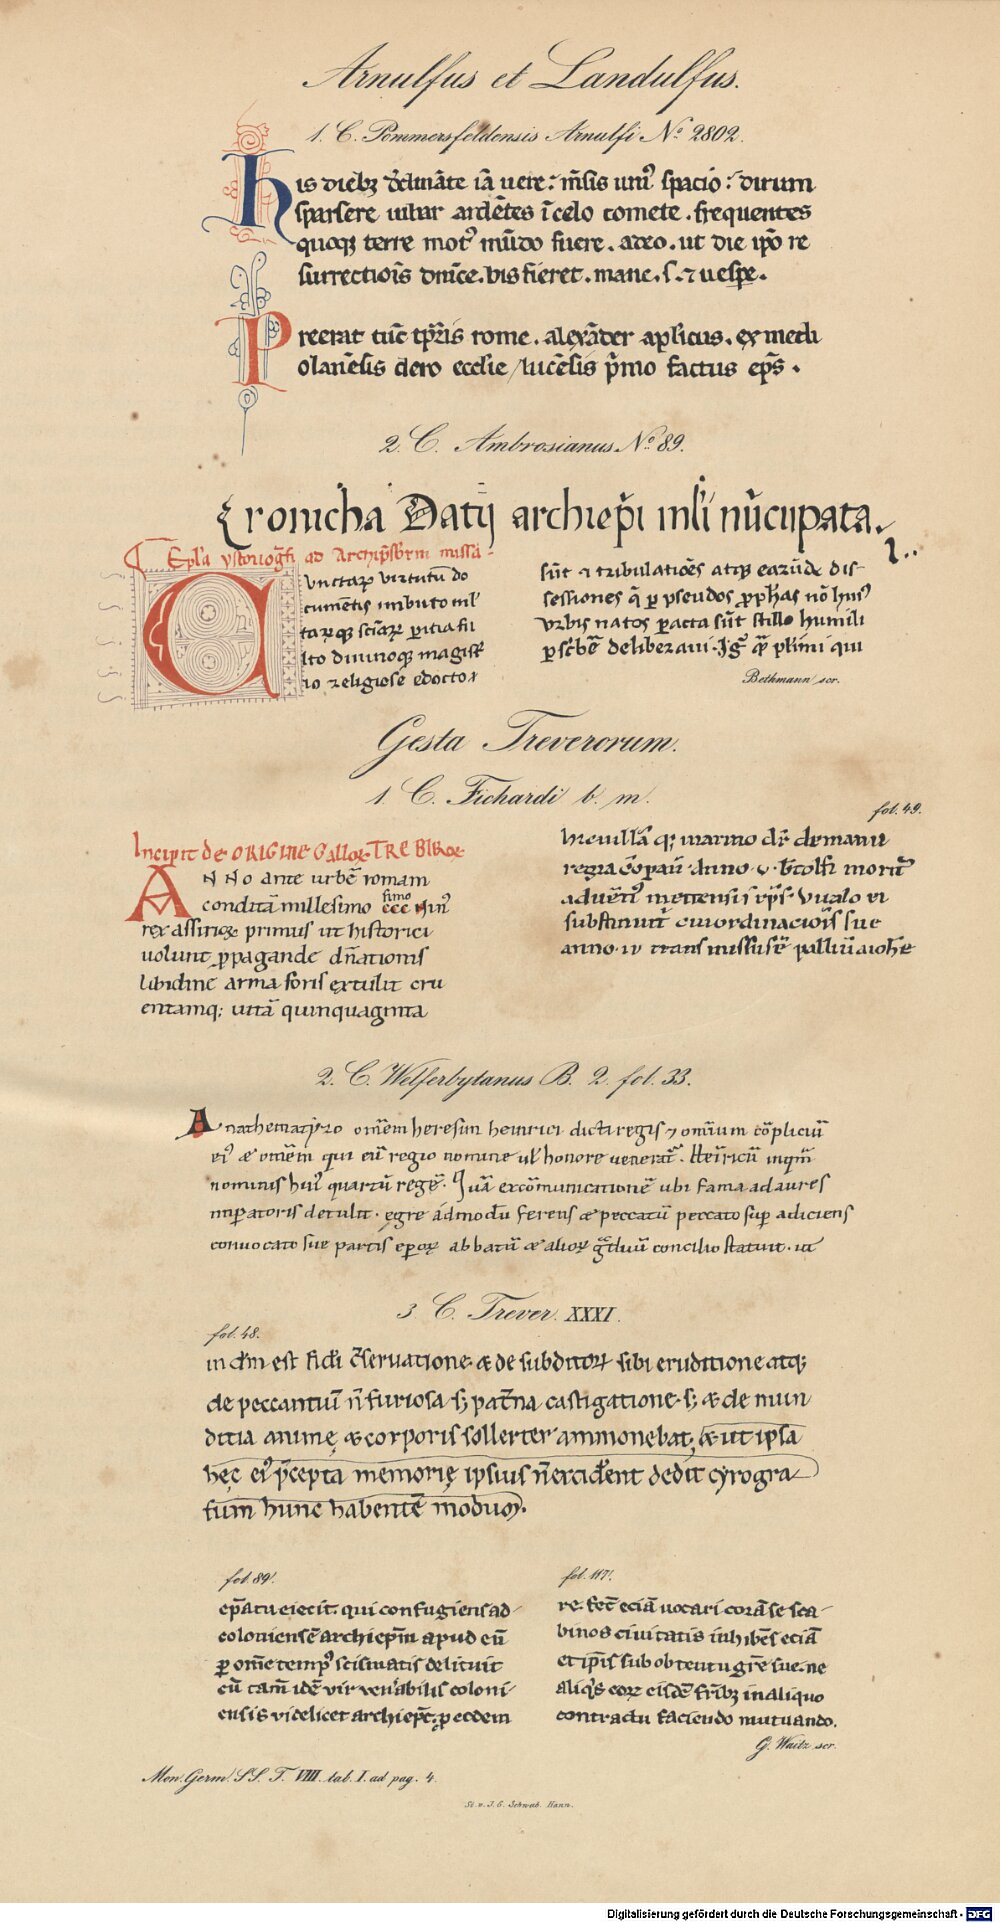 Arnulfus et Landulfus.
1. C. Pommersfeldensis Arnulfi No. 2802.
His dieb; declinãte iã uere. m̃sis uni᾽ spacio. dirum
sparsere iubar ardẽtes ĩ celo comete. frequentes
quoq; terre mot᾽ mũdo fuere. adeo. ut die ip̃o re
surrectiõis dñice. bis fieret. mane. s. ⁊ uesp̃e.
Preerat tũc tp̃ris rome. alexãder ap̃licus. ex medi
olanẽsis clero ecclie / lucẽsis p̃mo factus ep̃s.
2. C. Ambrosianus No. 89.
Cronicha Datij archiep̃i ml̃i nũcupata.
Ep̃la ystoriog̃fi ad Archip̃sb̃rm missa
Cunctaꝝ virtutũ do
cumẽtis imbuto mil᾽
taꝝq; sciãꝝ ꝑitia fil
ito diuinoq; magist̃
io religiose edocto
sũt ⁊ tribulatiões atq; eaꝝũde dis-
sessiones q̃ ꝑ pseudos ꝓph̃as nõ hui᾽
vrbis natos ꝑacta sũt stillo humili
ꝑscb̃e deliberaui. Ig̃ q̃ plĩmi qui
Bethmann scr.
Gesta Treverorum.
1. C. Fichardi b. m.
fol. 49.
Incipit de ORIGINE Galloꝝ TREBIRoꝝ
ANNo ante urbẽ romam
conditã millesimo ccc᾽ nin᾽
fimo
rex assirioꝝ primus ut historici
uolunt ꝓpagande dñationis
libidine arma foris extulit cru
entamq; uitã quinquaginta
hic uillã q; marino dr̃ de manu
regia cõparũ. Anno . v. b̃tolfi morit᾽
aduẽti᾽ mettensis ep̃s. Vualo ei
substituit᾽ cui ordinaciõis sue
anno. iv trans missus ẽ palliũ a ioh̃e
2. C. Welferbytanus B. 2. fol. 33.
Anathematizo om̃em heresim heinrici dicti regis ⁊ om̃ium cõpliciũ
ei᾽ & om̃em qui eũ regio nomine ul᾽ honore uenerat᾽. Hẽiricũ inqm̃
nominis hui᾽ quartũ regẽ. Quã excõmunicationẽ ubi fama ad aures
imperatoris detulit. egre ádmodũ ferens & peccatũ peccato sup̃ adiciens
conuocato sue partis ep̃oꝝ abbatũ & alioꝝ g̃duũ concilio statuit. ut
3 C. Trever. XXXI.
fol. 48.
in dm̃ est fidi c̃seruatione & de subditoꝝ sibi eruditione atq;
de peccantiũ ñ furiosa s; pat̃na castigatione. s; & de mun
ditia anime & corporis sollerter ammonebat, & ut ipsa
hec ei᾽ p̃cepta memorie ipsius ñ excidẽnt dedit cyrogra
fum hunc habentẽ modum.
fol. 89'.
ep̃atu eiecit. qui confugiens ad
coloniensẽ archiep̃m apud eũ
ꝑ om̃e temp᾽ scismatis delituit
cũ tam̃ idẽ vir ven᾽abilis coloni-
ensis videlicet archiep̃c. ꝑ eodem
fol. 117'.
re. fec̃ eciã uocari corã se sca-
binos ciuitatis inhibẽs eciã
et ip̃is sub obtentu gr̃e sue. ne
aliq̃s eoꝝ eisdẽ fr̃ib; in aliquo
contractu faciendo mutuando.
G. Waitz scr.
Mon. Germ. SS. T. VIII. tab. I. ad pag. 4.
St. v. J. G. Schwab. Hann.
Digitalisierung gefördert durch die Deutsche Forschungsgemeinschaft - DFG